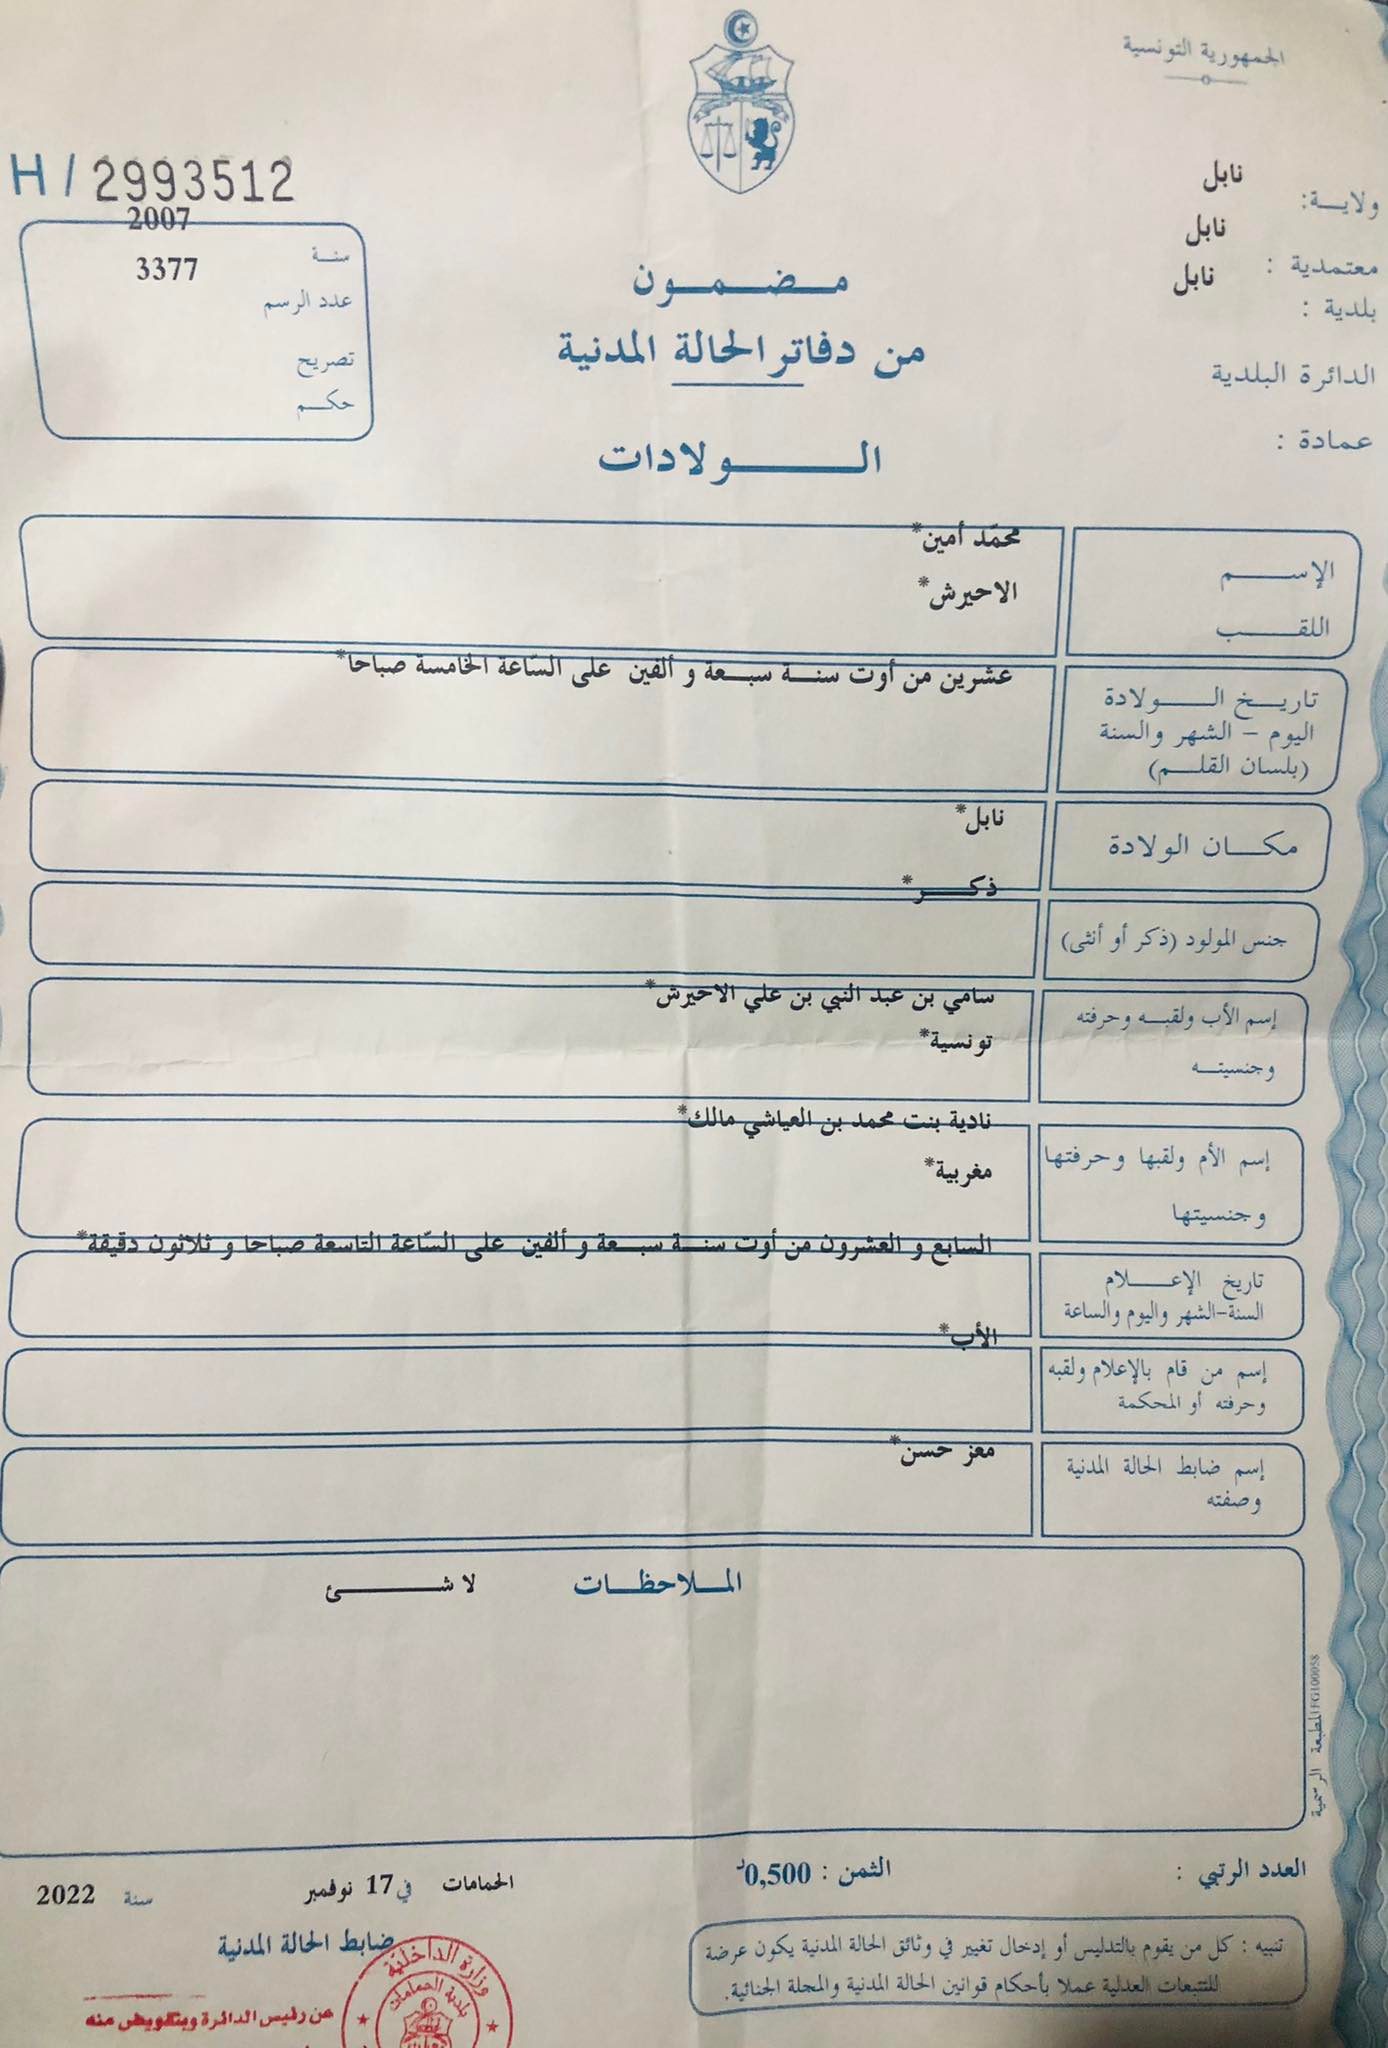 الجمهورية التونسية
H / 2993512
ولاية: نابل
معتمدية : نابل
بلدية : نابل
الدائرة البلدية
عمادة :
سنة 2007
عدد الرسم 3377
تصريح
حكم
مضمون
من دفاتر الحالة المدنية
الولادات
الإسم محمّد أمين*
اللقب الاحيرش*
تاريخ الولادة عشرين من أوت سنة سبعة و ألفين على السّاعة الخامسة صباحا*
اليوم - الشهر والسنة
(بلسان القلم)
مكان الولادة نابل*
جنس المولود (ذكر أو أنثى) ذكر*
إسم الأب ولقبه وحرفته سامي بن عبد النبي بن علي الاحيرش*
وجنسيته تونسية*
إسم الأم ولقبها وحرفتها نادية بنت محمد بن العياشي مالك*
وجنسيتها مغربية*
تاريخ الإعلام السابع و العشرون من أوت سنة سبعة و ألفين على السّاعة التاسعة صباحا و ثلاثون دقيقة*
السنة-الشهر واليوم والساعة
إسم من قام بالإعلام ولقبه الأب*
وحرفته أو المحكمة
إسم ضابط الحالة المدنية معز حسن*
وصفته
الملاحظات لا شئ
المطبعة الرسمية FG100058
العدد الرتبي : الثمن : 0,500د
الحمامات في 17 نوفمبر سنة 2022
تنبيه : كل من يقوم بالتدليس أو إدخال تغيير في وثائق الحالة المدنية يكون عرضة
للتتبعات العدلية عملا بأحكام قوانين الحالة المدنية والمجلة الجنائية.
ضابط الحالة المدنية
وزارة الداخلية
بلدية الحمامات
عن رئيس الدائرة وبتفويض منه